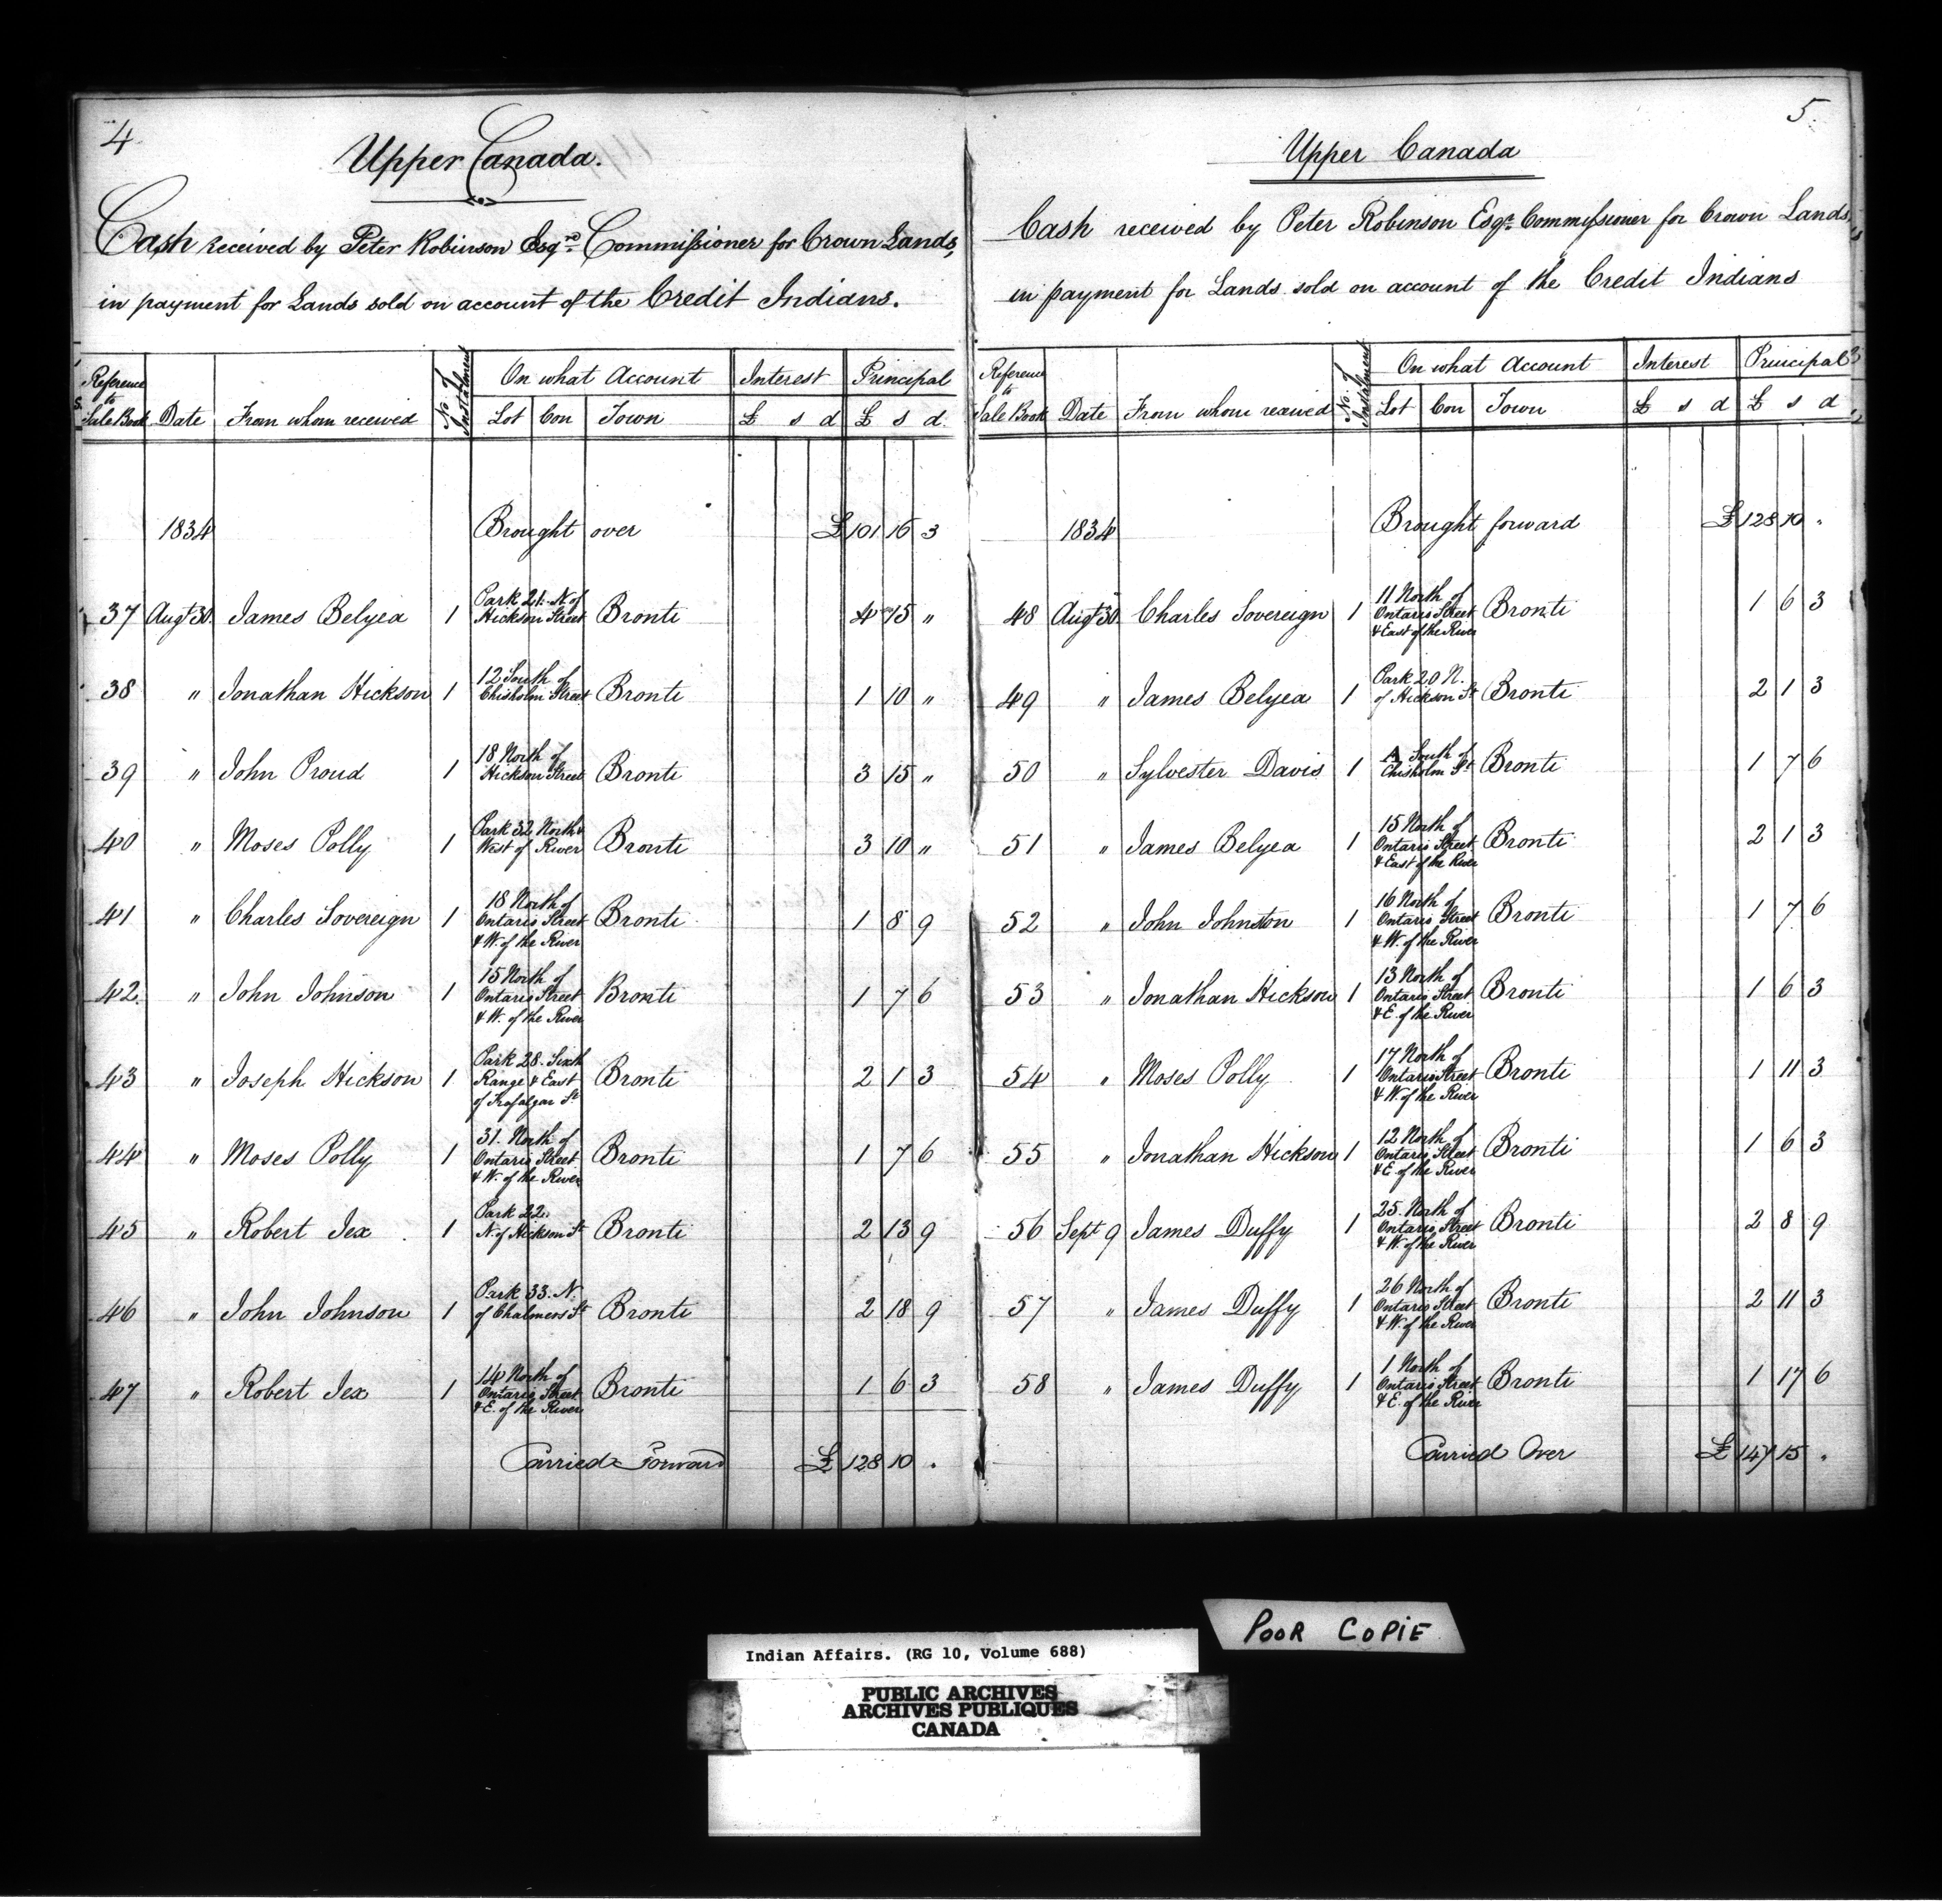 4
Upper Canada.
Cash received by Peter Robinson Esqre Commissioner for Crown Lands,
in payment for Lands sold on account of the Credit Indians.
Reference to Sale Book Date From whom received No. of Instalment On what Account Interest Principal
Lot Con Town £ s d £ s d.
1834 Brought over £101 16 3
37 Augt 30. James Belyea 1 Park 21. N. of Hickson Street Bronti 4 15 "
38 " Jonathan Hickson 1 12 South of Chisholm Street Bronti 1 10 "
39 " John Proud 1 18 North of Hickson Street Bronti 3 15 "
40 " Moses Polly 1 Park 32 North & West of River Bronti 3 10 "
41 " Charles Sovereign 1 18 North of Ontario Street & W. of the River Bronti 1 8 9
42. " John Johnson 1 15 North of Ontario Street & W. of the River Bronti 1 7 6
43 " Joseph Hickson 1 Park 28. Sixth Range & East of Trafalgar St Bronti 2 1 3
44 " Moses Polly 1 31. North of Ontario Street & W. of the River Bronti 1 7 6
45 " Robert Jex 1 Park 22. N. of Hickson St Bronti 2 13 9
46 " John Johnson 1 Park 33. N. of Chalmers St Bronti 2 18 9
47 " Robert Jex 1 14 North of Ontario Street & E. of the River Bronti 1 6 3
Carried Forward £128 10 .
5.
Upper Canada
Cash received by Peter Robinson Esqr. Commissioner for Crown Lands,
in payment for Lands sold on account of the Credit Indians
Reference to Sale Book Date From whom received No. of Instalment On what Account Interest Principal
Lot Con Town £ s d £ s d
1834 Brought forward £128 10 "
48 Augt 30. Charles Sovereign 1 11 North of Ontario Street & East of the River Bronti 1 6 3
49 " James Belyea 1 Park 20 N. of Hickson St Bronti 2 1 3
50 " Sylvester Davis 1 A South of Chisholm St Bronti 1 7 6
51 " James Belyea 1 15 North of Ontario Street & East of the River Bronti 2 1 3
52 " John Johnston 1 16 North of Ontario Street & W. of the River Bronti 1 7 6
53 " Jonathan Hickson 1 13 North of Ontario Street & E. of the River Bronti 1 6 3
54 " Moses Polly 1 17 North of Ontario Street & W. of the River Bronti 1 11 3
55 " Jonathan Hickson 1 12 North of Ontario Street & E. of the River Bronti 1 6 3
56 Sept 9 James Duffy 1 25. North of Ontario Street & W. of the River Bronti 2 8 9
57 " James Duffy 1 26 North of Ontario Street & W. of the River Bronti 2 11 3
58 " James Duffy 1 1 North of Ontario Street & E. of the River Bronti 1 17 6
Carried Over £147 15 .
POOR COPIE
Indian Affairs. (RG 10, Volume 688)
PUBLIC ARCHIVES
ARCHIVES PUBLIQUES
CANADA